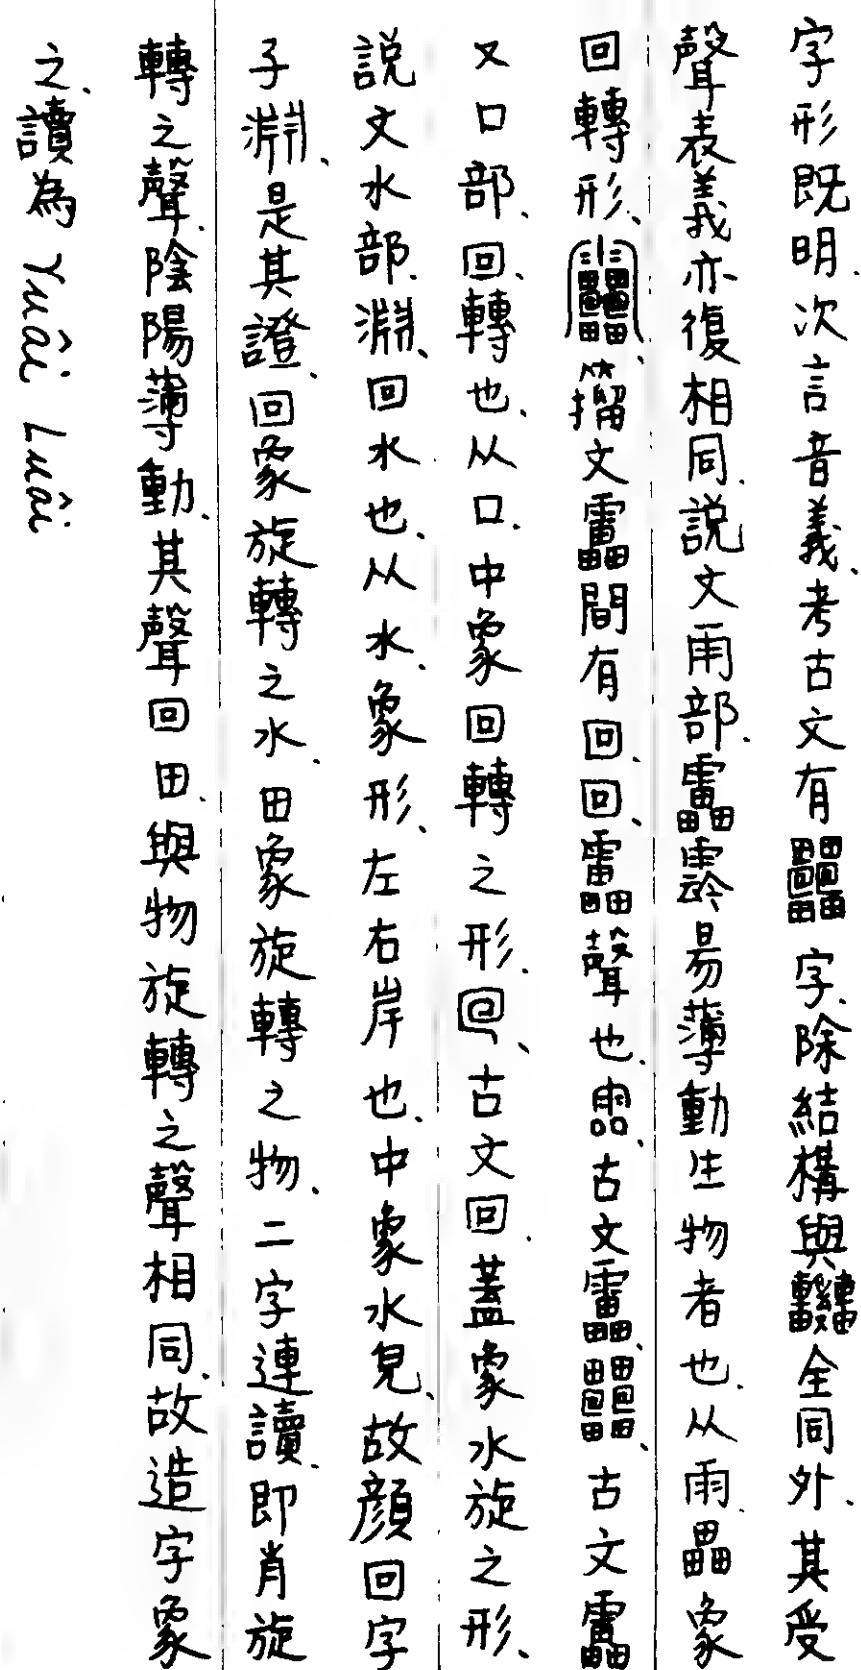 字形既明、次言音義、考古文有字、除結構與全同外、其受
聲表義亦復相同、説文雨部、靁霒昜薄動生物者也、从雨畾象
回轉形、籒文靁間有回、回、靁聲也、古文靁、古文靁
又口部、回、轉也、从口、中象回轉之形、古文回、蓋象水旋之形、
説文水部、淵、回水也、从水、象形、左右岸也、中象水皃、故顔回字
子淵、是其證、回象旋轉之水、田象旋轉之物、二字連讀、即肖旋
轉之聲、陰陽薄動、其聲回田、與物旋轉之聲相同、故造字象
之、讀為 Yuâi Luâi